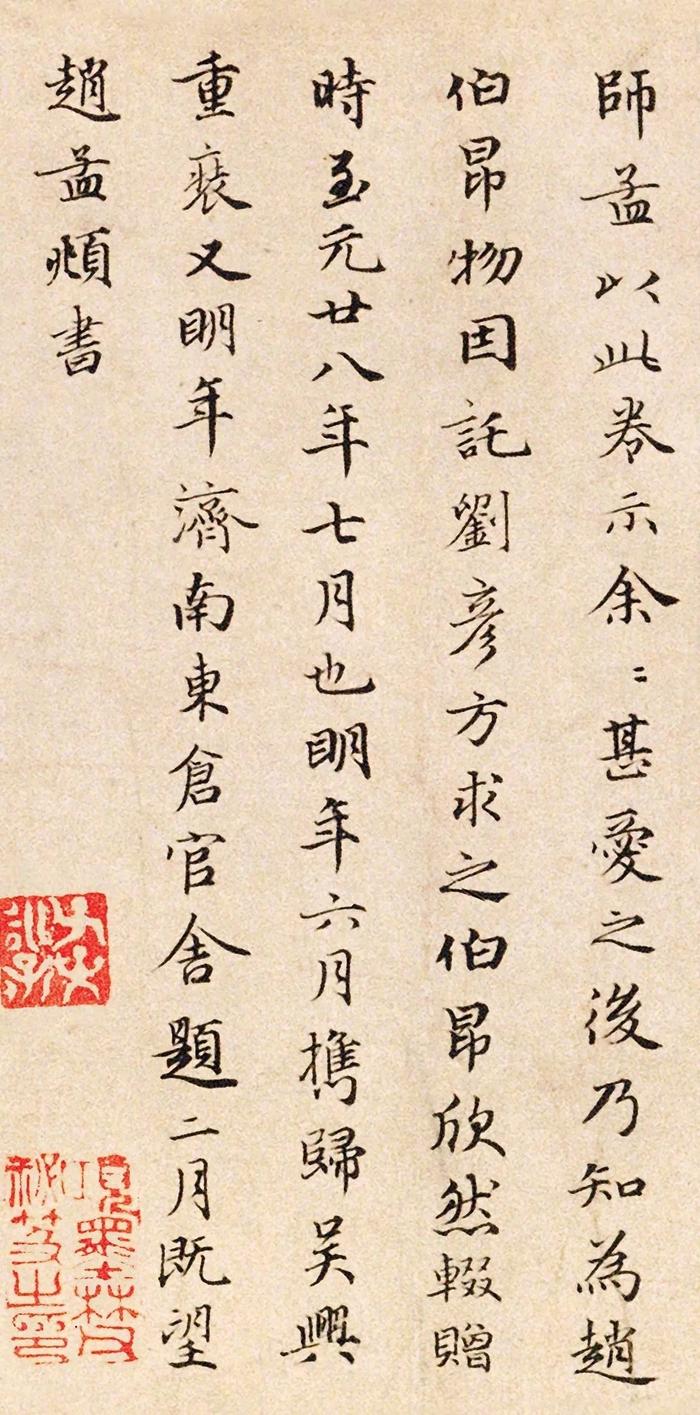 師孟以此卷示余〻甚愛之後乃知為趙
伯昂物因託劉彦方求之伯昂欣然輟贈
時至元廿八年七月也明年六月攜歸吴興
重裝又明年濟南東倉官舍題二月既望
趙孟頫書
項墨林父
祕笈之印